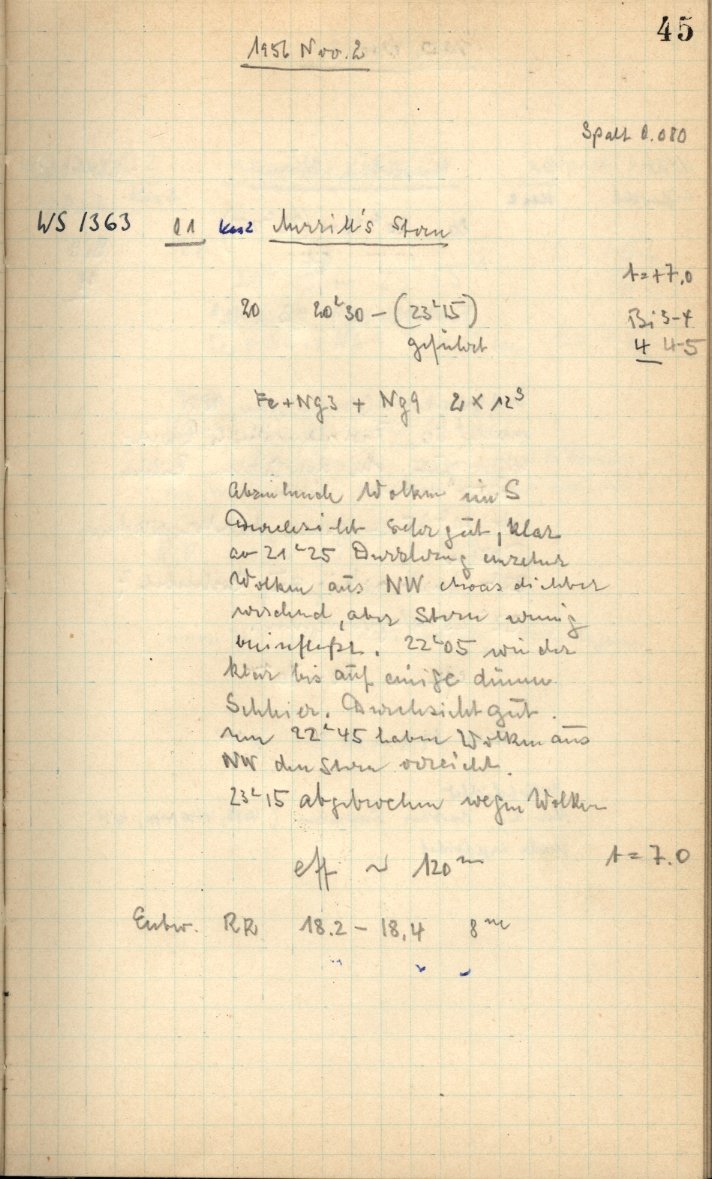 45
1956 Nov. 2
Spalt 0.080
WS 1363 01 Merrill's Stern
t=+7.0
20 20ʰ30 – (23ʰ15) Bi 3-4
geführt 4 4-5
Fe+Ng3 + Ng9 2 × 12ˢ
Abziehende Wolken im S
Durchsicht sehr gut, klar
ab 21ʰ25 Durchzug einzelner
Wolken aus NW etwas dichter
werdend, aber Stern wenig
beeinflußt. 22ʰ05 wieder
klar bis auf einige dünne
Schlier. Durchsicht gut.
um 22ʰ45 haben Wolken aus
NW den Stern erreicht.
23ʰ15 abgebrochen wegen Wolken
eff ~ 120ᵐ t=7.0
Entw. RR 18.2 – 18,4 8ᵐ